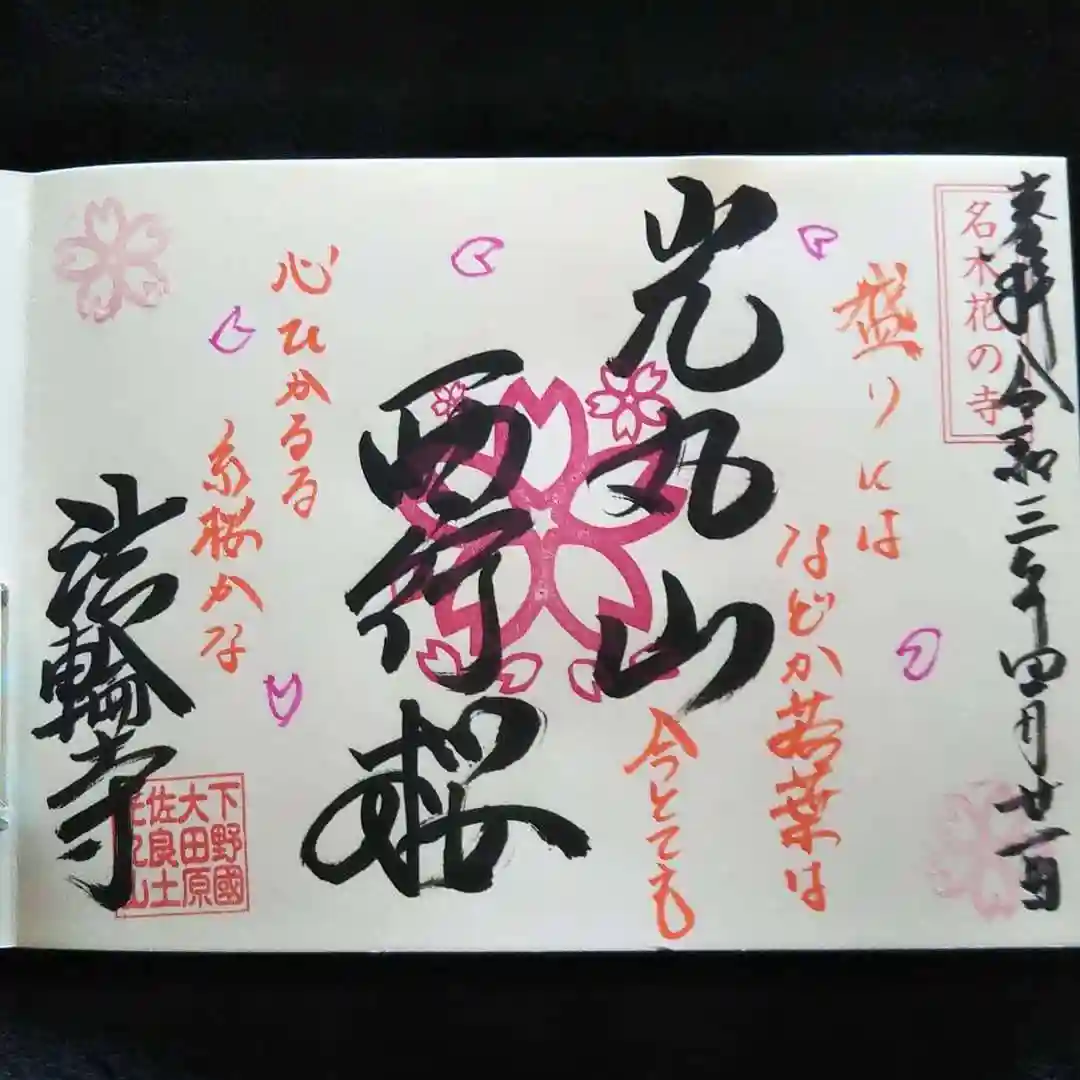 奉拝 令和三年四月廿一日
名木花の寺
盛りには
などか若葉は
今とても
光丸山
西行桜
心ひかるる
糸桜かな
法輪寺
下野國
大田原
佐良土
光丸山